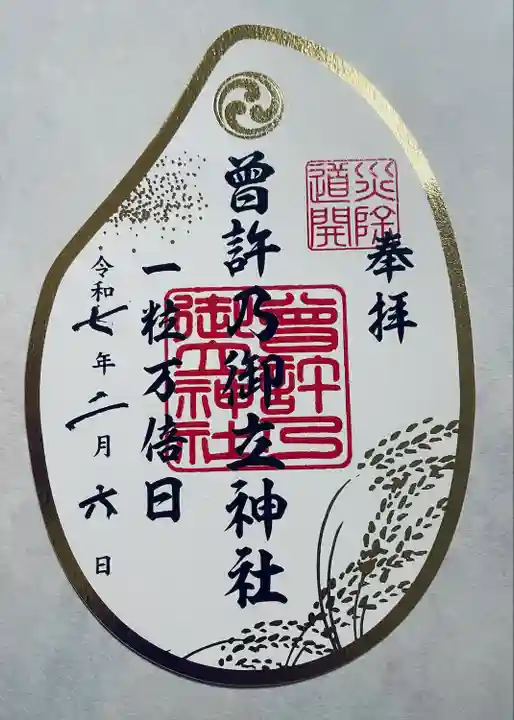 奉拝
災除
道開
曾許乃御立神社
曾許乃
御立神社
一粒万倍日
令和七年二月六日